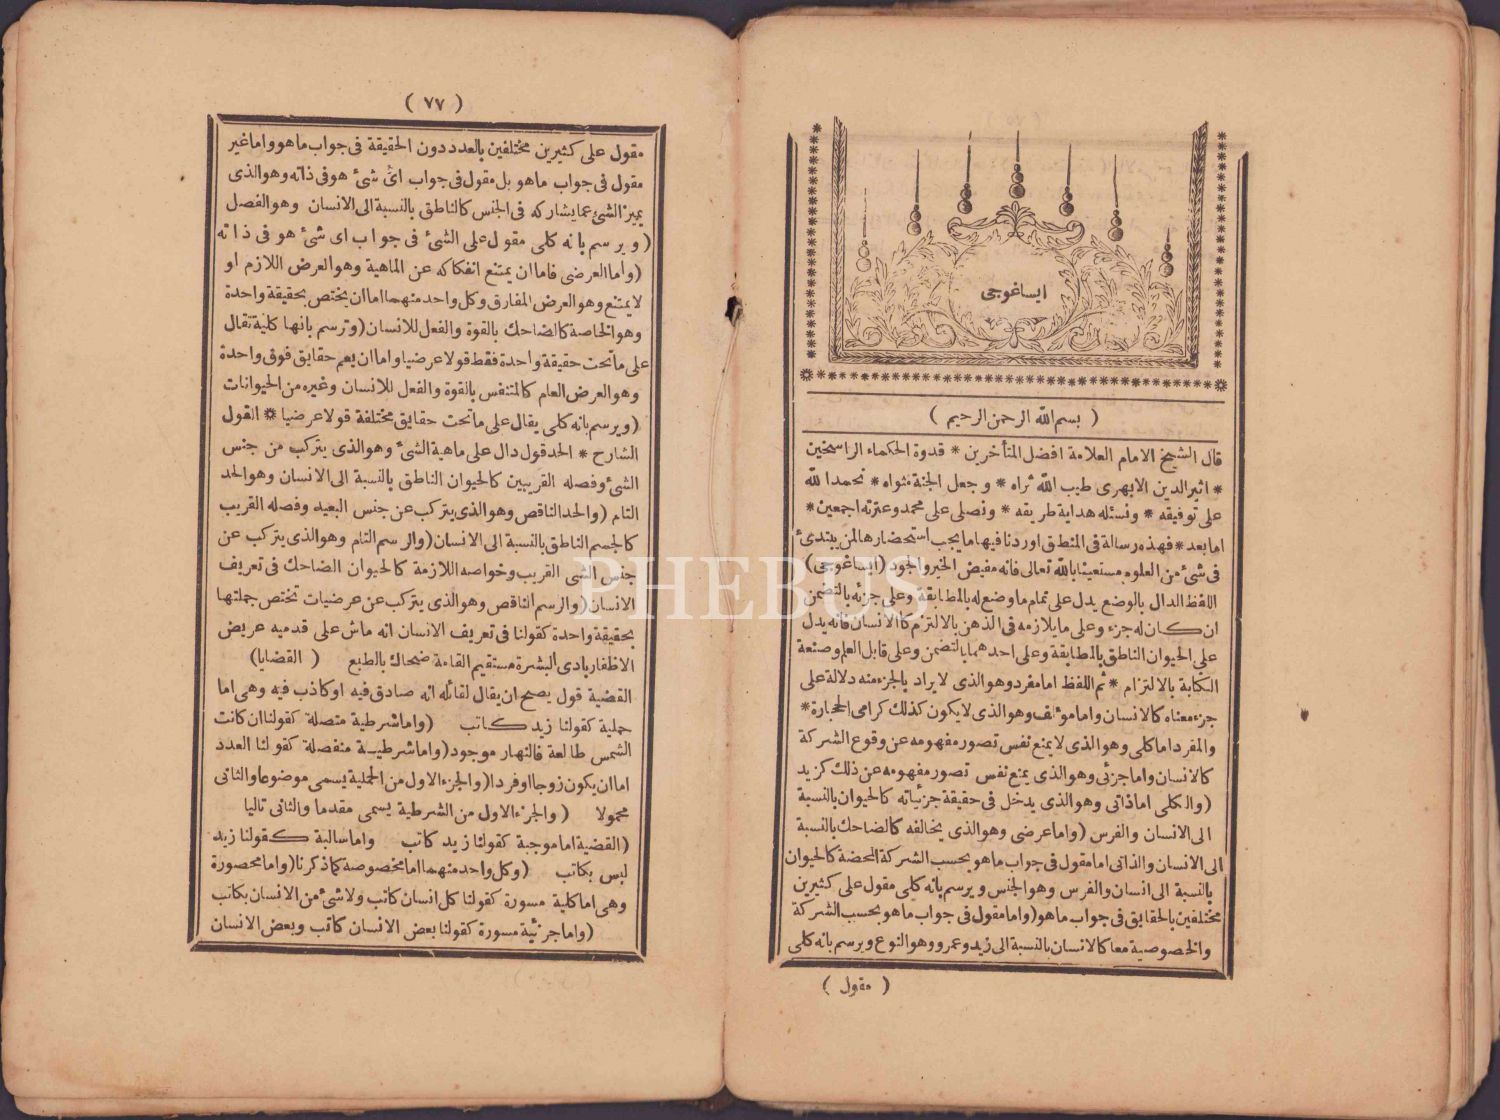 ايساغوجى
( بسم الله الرحمن الرحيم )
قال الشيخ الامام العلامة افضل المتأخرين * قدوة الحكماء الراسخين
* اثير الدين الابهرى طيب الله ثراه * وجعل الجنة مثواه * نحمد الله
على توفيقه * ونسئله هداية طريقه * ونصلى على محمد وعترته اجمعين *
اما بعد * فهذه رسالة فى المنطق اوردنا فيها ما يجب استحضارها لمن يبتدئ
فى شئ من العلوم مستعينا بالله تعالى فانه مفيض الخير والجود (ايساغوجى)
اللفظ الدال بالوضع يدل على تمام ما وضع له بالمطابقة وعلى جزئه بالتضمن
ان كان له جزء وعلى ما يلازمه فى الذهن بالالتزام كالانسان فانه يدل
على الحيوان الناطق بالمطابقة وعلى احدهما بالتضمن وعلى قابل العلم وصنعة
الكتابة بالالتزام * ثم اللفظ اما مفرد وهو الذى لا يراد بالجزء منه دلالة على
جزء معناه كالانسان واما مؤلف وهو الذى لا يكون كذلك كرامى الحجارة *
والمفرد اما كلى وهو الذى لا يمنع نفس تصور مفهومه عن وقوع الشركة
كالانسان واما جزئى وهو الذى يمنع نفس تصور مفهومه عن ذلك كزيد
(والكلى اما ذاتى وهو الذى يدخل فى حقيقة جزئياته كالحيوان بالنسبة
الى الانسان والفرس (واما عرضى وهو الذى يخالفه كالضاحك بالنسبة
الى الانسان والذاتى اما مقول فى جواب ما هو بحسب الشركة المحضة كالحيوان
بالنسبة الى انسان والفرس وهو الجنس ويرسم بانه كلى مقول على كثيرين
مختلفين بالحقايق فى جواب ما هو (واما مقول فى جواب ما هو بحسب الشركة
والخصوصية معا كالانسان بالنسبة الى زيد وعمرو وهو النوع ويرسم بانه كلى
( مقول )
( ٧٧ )
مقول على كثيرين مختلفين بالعدد دون الحقيقة فى جواب ما هو واما غير
مقول فى جواب ما هو بل مقول فى جواب اى شئ هو فى ذاته وهو الذى
يميز الشئ عما يشاركه فى الجنس كالناطق بالنسبة الى الانسان وهو الفصل
(ويرسم بانه كلى مقول على الشئ فى جواب اى شئ هو فى ذاته
(واما العرضى فاما ان يمتنع انفكاكه عن الماهية وهو العرض اللازم او
لا يمتنع وهو العرض المفارق وكل واحد منهما اما ان يختص بحقيقة واحدة
وهو الخاصة كالضاحك بالقوة والفعل للانسان (وترسم بانها كلية تقال
على ما تحت حقيقة واحدة فقط قولا عرضيا واما ان يعم حقايق فوق واحدة
وهو العرض العام كالمتنفس بالقوة والفعل للانسان وغيره من الحيوانات
(ويرسم بانه كلى يقال على ما تحت حقايق مختلفة قولا عرضيا * القول
الشارح * الحد قول دال على ماهية الشئ وهو الذى يتركب من جنس
الشئ وفصله القريبين كالحيوان الناطق بالنسبة الى الانسان وهو الحد
التام (والحد الناقص وهو الذى يتركب عن جنس البعيد وفصله القريب
كالجسم الناطق بالنسبة الى الانسان (والرسم التام وهو الذى يتركب عن
جنس الشى القريب وخواصه اللازمة كالحيوان الضاحك فى تعريف
الانسان (والرسم الناقص وهو الذى يتركب عن عرضيات تختص جملتها
بحقيقة واحدة كقولنا فى تعريف الانسان انه ماش على قدميه عريض
الاظفار بادى البشرة مستقيم القامة ضحاك بالطبع ( القضايا )
القضية قول يصح ان يقال لقائله انه صادق فيه او كاذب فيه وهى اما
حملية كقولنا زيد كاتب (واما شرطية متصلة كقولنا ان كانت
الشمس طالعة فالنهار موجود (واما شرطية منفصلة كقولنا العدد
اما ان يكون زوجا او فردا (والجزء الاول من الحملية يسمى موضوعا والثانى
محمولا (والجزء الاول من الشرطية يسمى مقدما والثانى تاليا
(القضية اما موجبة كقولنا زيد كاتب واما سالبة كقولنا زيد
ليس بكاتب (وكل واحد منهما اما مخصوصة كما ذكرنا (واما محصورة
وهى اما كلية مسورة كقولنا كل انسان كاتب ولا شئ من الانسان بكاتب
(واما جزئية مسورة كقولنا بعض الانسان كاتب وبعض الانسان
PHEBUS